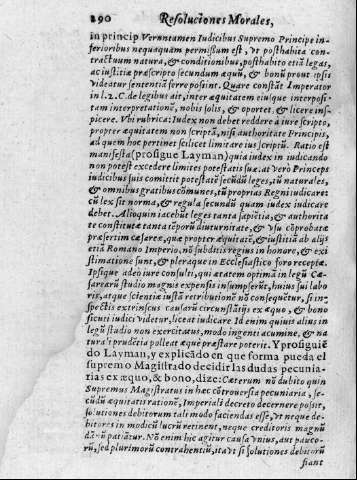 290 Resoluciones Morales,
in princip Veruntamen Iudicibus Supremo Principe in-
ferioribus nequaquam permissum est, vt posthabita con-
tractuum natura, & conditionibus, posthabito etiā legas,
ac iustitiæ præscripto secundum æquū, & bonū prout ipsis
videatur sententiā ferre possint. Quare constāt Imperator
in l. 2. C. de legibus ait, inter æquitatem eiusque interposi-
tam interpretationē, nobis solis, & oportet, & licere ins-
picere. Vbi rubrica: Iudex non debet reddere à iure scripto,
propter æquitatem non scriptā, nisi authoritate Principis,
ad quem hoc pertinet scilicet limitare ius scriptū. Ratio est
manifesta (prosigue Layman) quia iudex in iudicando
non potest excedere limites potestatis suæ. at verò Princeps
iudicibus suis comittit potestatē secūdū leges, tū naturales,
& omnibus gratibus cōmunes, tū proprias Regni iudicare:
cū lex sit norma, & regula secundū quam iudex iudicare
debet. Alioquin iacebūt leges tanta sapiētia, & authorita
te constitutæ tanta tēporū diuturnitate, & vsu cōprobatæ
præsertim cæsareæ, quæ propter æquitatē, & iustitiā ab alijs
etiā Romano Imperio, nō subditis regnis in honore, & exi
stimatione sunt, & pleraque in Ecclesiastico foro receptæ.
Ipsique adeò iure consulti, qui ætatem optimā in legū Cæ-
sarearū studio magnis expensis insumpserūt, huius sui labo
ris, atque scientiæ iustā retributionē nō consequētur, si in-
spectis extrinsecus causarū circunstātijs ex æquo, & bono
sicuti iudici videtur, liceat iudicare Id enim quiuis alius in
legū studio non exercitatus, modo ingenti acumine, & na
turali prudētia polleat æquè præstare poterit. Y prosiguiē
do Layman, y explicādo en que forma pueda el
supremo Magistrado decidir las dudas pecunia-
rias ex æquo, & bono, dize: Cæterum nō dubito quin
Supremus Magistratus in hac cōtrouersia pecuniaria, se-
cūdū æquitatis rationē, Imperiali decreto decernere possit,
solutiones debitorum tali modo faciendas esse, vt neque de-
bitores in modicū lucrū retinent, neque creditoris magnū
dānū patiātur. Nō enim hic agitur causa vnius, aut pauco-
rū, sed plurimorū contrahentiū, ita vt si solutiones debitorū
fiant